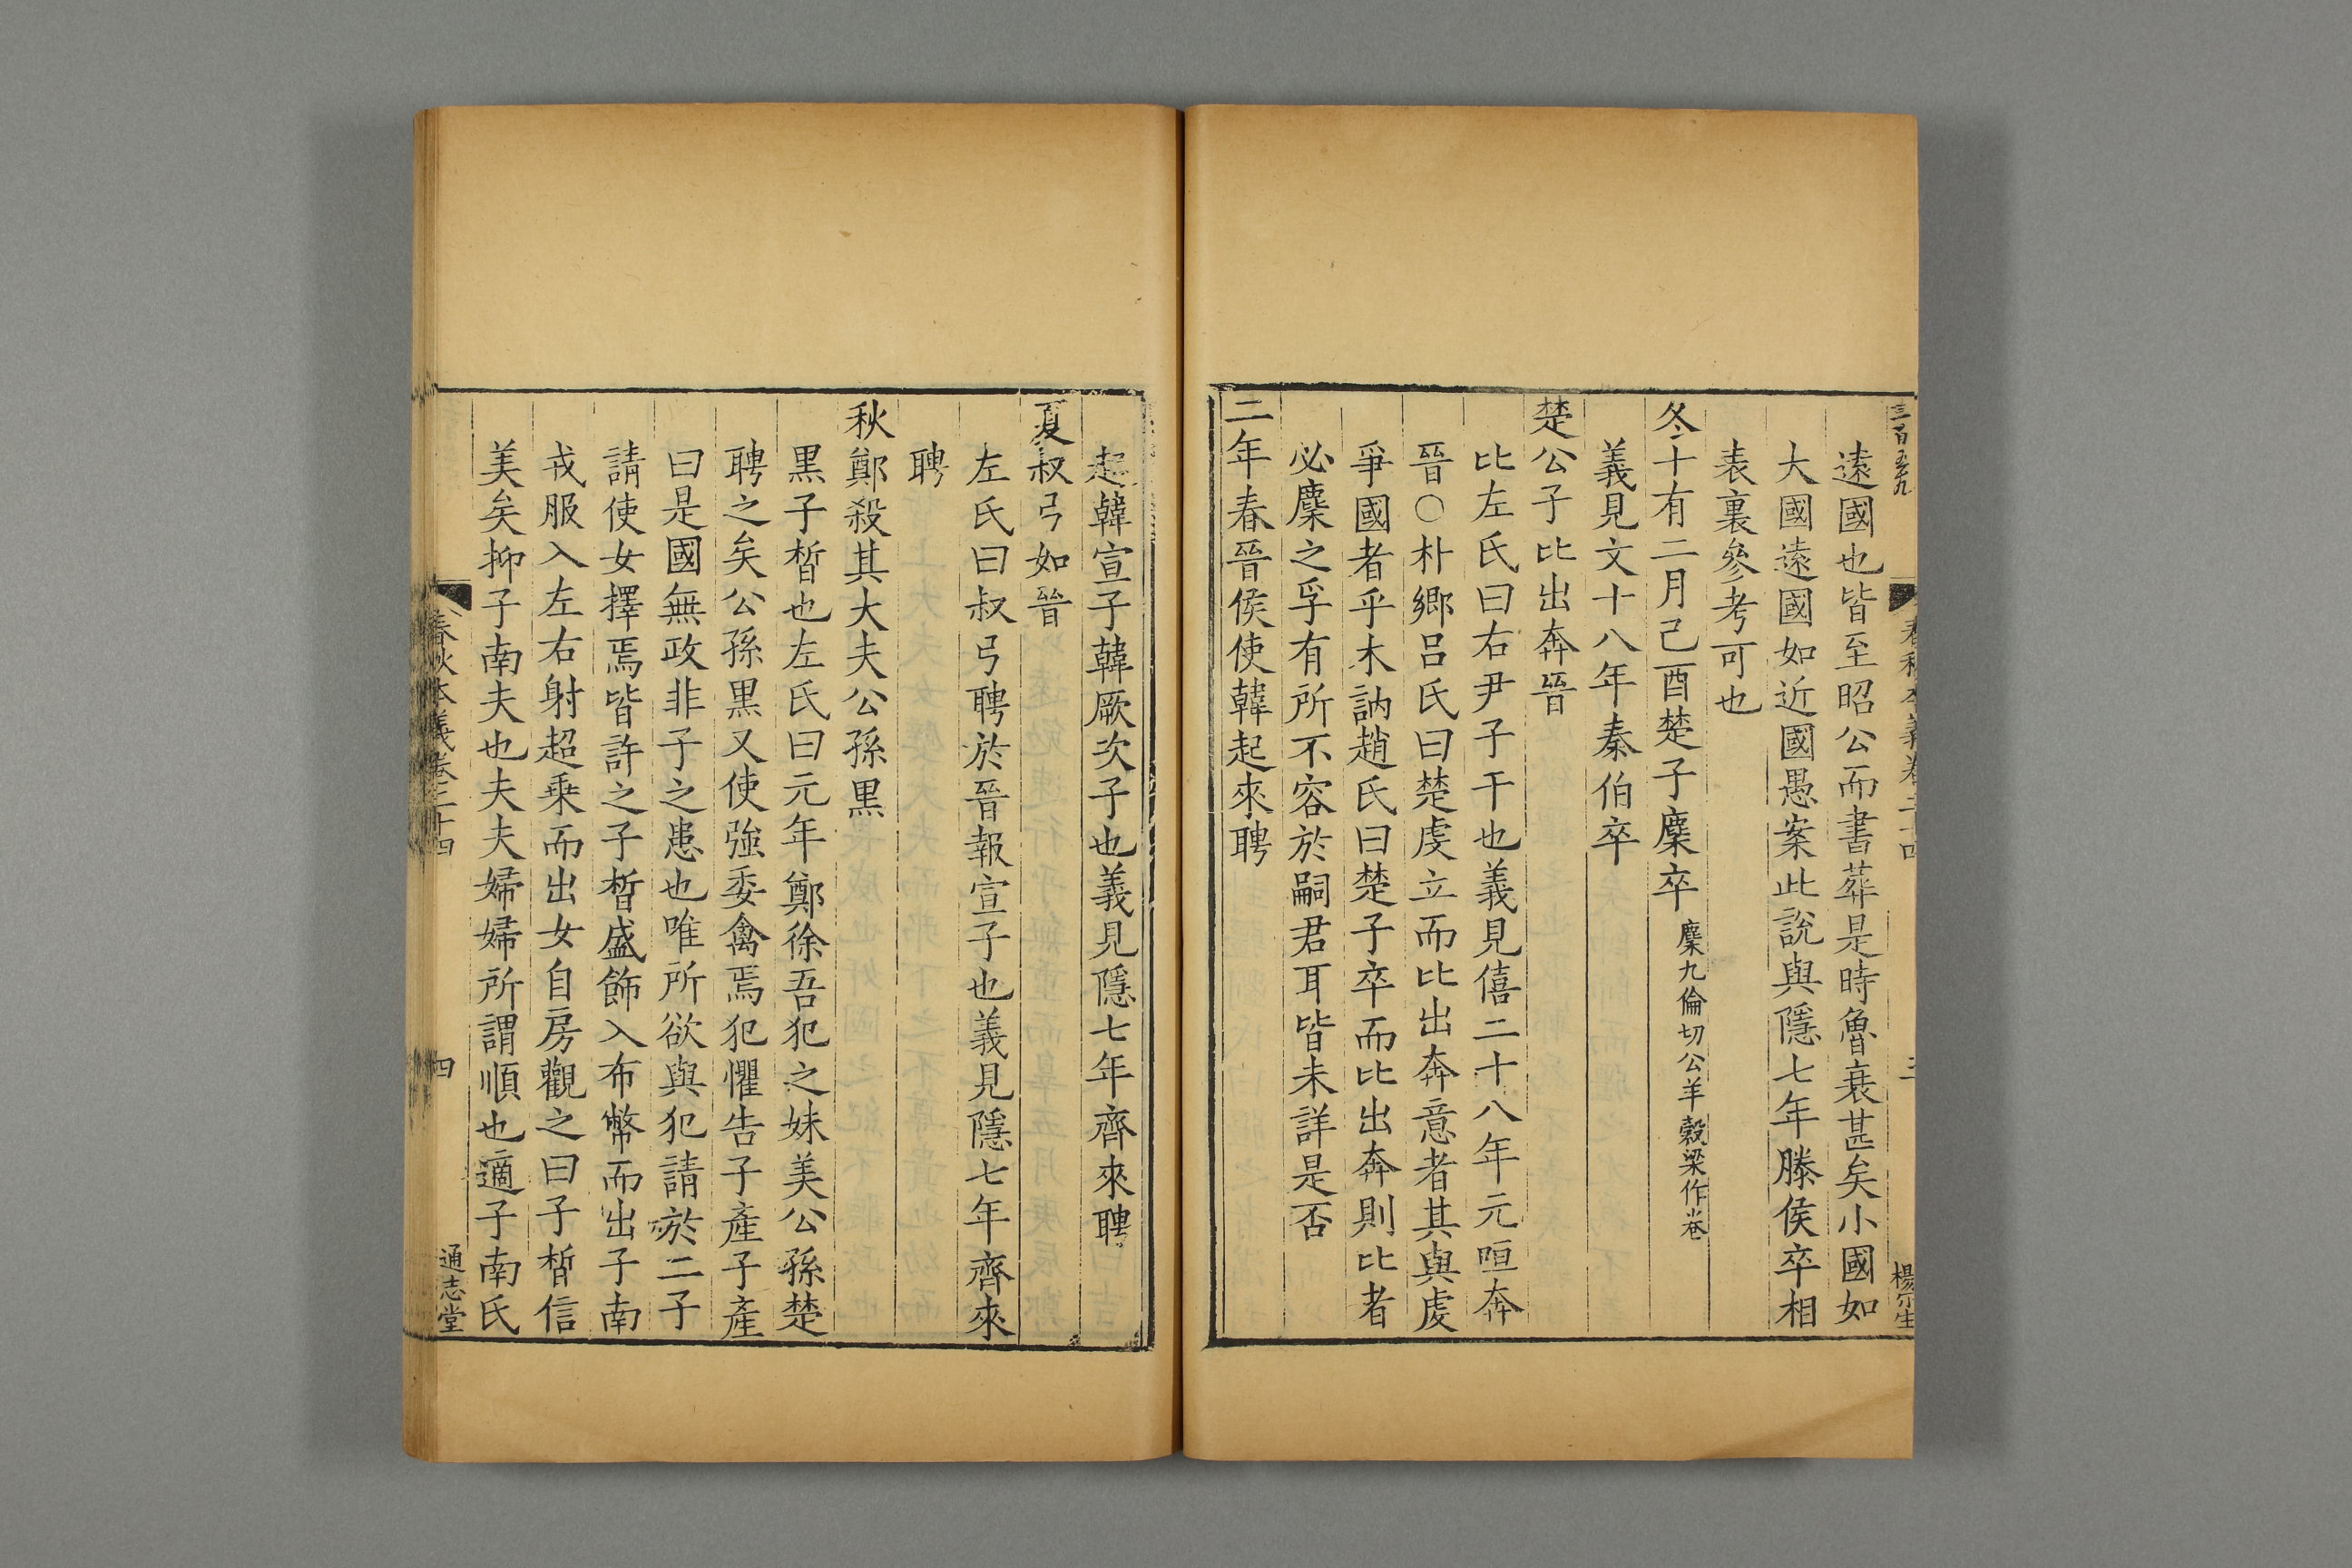 三百五九
春秋本義卷二十四
三
楊宗生
遠國也皆至昭公而書葬是時魯衰甚矣小國如
大國遠國如近國愚案此說與隱七年滕侯卒相
表裏參考可也
冬十有二月己酉楚子麇卒麇九倫切公羊穀梁作卷
義見文十八年秦伯卒
楚公子比出奔晉
比左氏曰右尹子干也義見僖二十八年元咺奔
晉○朴鄉呂氏曰楚虔立而比出奔意者其與虔
爭國者乎木訥趙氏曰楚子卒而比出奔則比者
必麇之孚有所不容於嗣君耳皆未詳是否
二年春晉侯使韓起來聘
起韓宣子韓厥次子也義見隱七年齊來聘
夏叔弓如晉
左氏曰叔弓聘於晉報宣子也義見隱七年齊來
聘
秋鄭殺其大夫公孫黑
黑子晳也左氏曰元年鄭徐吾犯之妹美公孫楚
聘之矣公孫黑又使強委禽焉犯懼告子產子產
曰是國無政非子之患也唯所欲與犯請於二子
請使女擇焉皆許之子晳盛飾入布幣而出子南
戎服入左右射超乘而出女自房觀之曰子晳信
美矣抑子南夫也夫夫婦婦所謂順也適子南氏
春秋本義卷二十四
四
通志堂